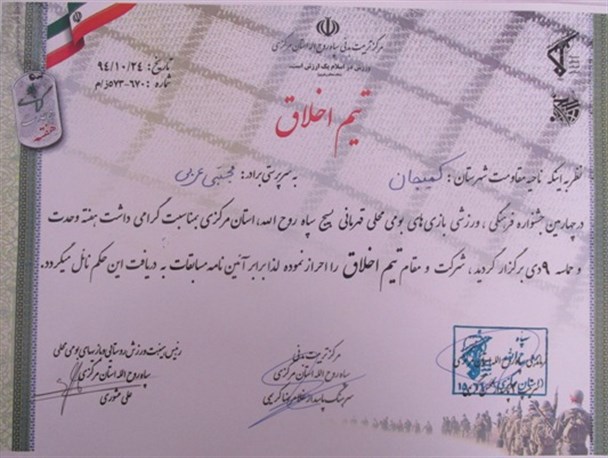 مرکز تربیت بدنی سپاه روح الله استان مرکزی
ورزش در اسلام یک ارزش است.
تاریخ: ۹۴/۱۰/۲۴
شماره: ۶۷۰-۵۷۳/ز/م
هفته
تیم اخلاق
نظر به اینکه ناحیه مقاومت شهرستان: کمیجان به سرپرستی برادر: مجتبی عربی
در چهارمین جشنواره فرهنگی، ورزشی بازی های بومی محلی قهرمانی بسیج سپاه روح الله، استان مرکزی بمناسبت گرامی داشت هفته وحدت
و حماسه ۹ دی برگزار گردید، شرکت و مقام تیم اخلاق را احراز نموده لذا برابر آئین نامه مسابقات به دریافت این حکم نائل میگردد.
رئیس هیئت ورزش روستائی و بازیهای بومی محلی
سپاه روح الله استان مرکزی
علی منصوری
مرکز تربیت بدنی
سپاه روح الله استان مرکزی
سرهنگ پاسدار غلامرضا کریمی
سپاه